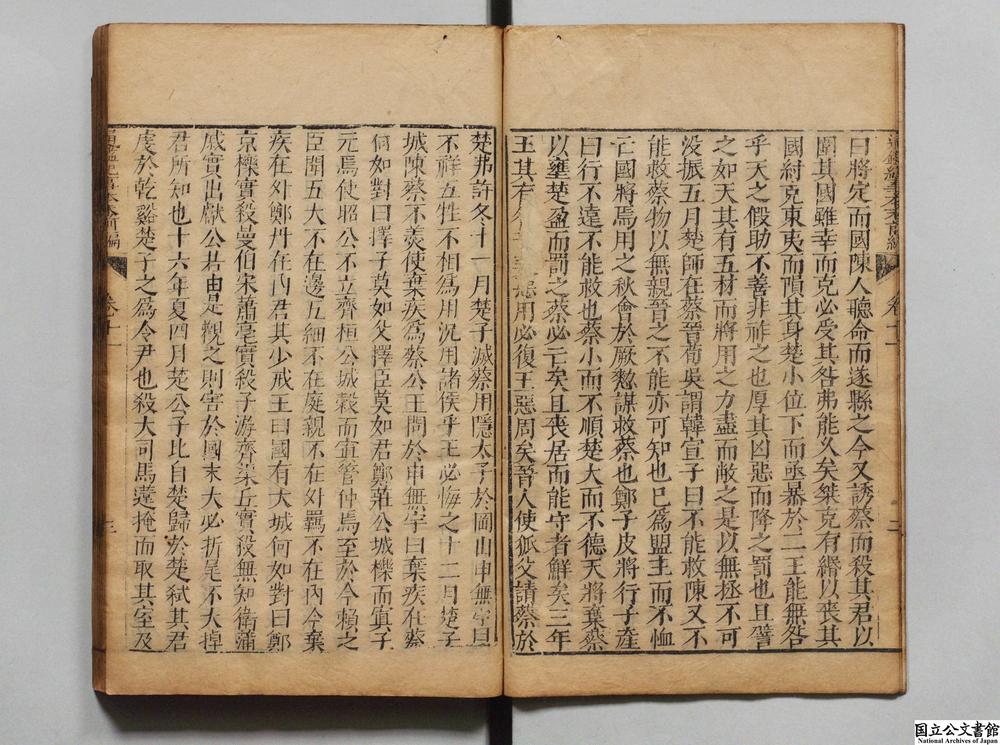 曰將定而國陳人聽命而遂縣之今又誘蔡而殺其君以
圍其國雖幸而克必受其咎弗能久矣桀克有緡以喪其
國紂克東夷而隕其身楚小位下而亟暴於二王能無咎
乎天之假助不善非祚之也厚其凶惡而降之罰也且譬
之如天其有五材而將用之力盡而敝之是以無拯不可
没振五月楚師在蔡晉荀吳謂韓宣子曰不能救陳又不
能救蔡物以無親晉之不能亦可知也已爲盟主而不恤
亡國將焉用之秋會於厥憖謀救蔡也鄭子皮將行子產
曰行不遠不能救也蔡小而不順楚大而不德天將棄蔡
以壅楚盈而罰之蔡必亡矣且喪君而能守者鮮矣三年
王其有 惡用必復王惡周矣晉人使狐父請蔡於
卷十一
二
楚弗許冬十一月楚子滅蔡用隱太子於岡山申無宇曰
不祥五牲不相爲用況用諸侯乎王必悔之十二月楚子
城陳蔡不羹使棄疾爲蔡公王問於申無宇曰棄疾在蔡
何如對曰擇子莫如父擇臣莫如君鄭莊公城櫟而寘子
元焉使昭公不立齊桓公城穀而寘管仲焉至於今賴之
臣聞五大不在邊五細不在庭親不在外羈不在內今棄
疾在外鄭丹在內君其少戒王曰國有大城何如對曰鄭
京櫟實殺曼伯宋蕭亳實殺子游齊渠丘實殺無知衛蒲
戚實出獻公若由是觀之則害於國末大必折尾不大掉
君所知也十六年夏四月楚公子比自楚歸於楚弒其君
虔於乾谿楚子之爲令尹也殺大司馬薳掩而取其室及
卷十一
三
国立公文書館
National Archives of Japan